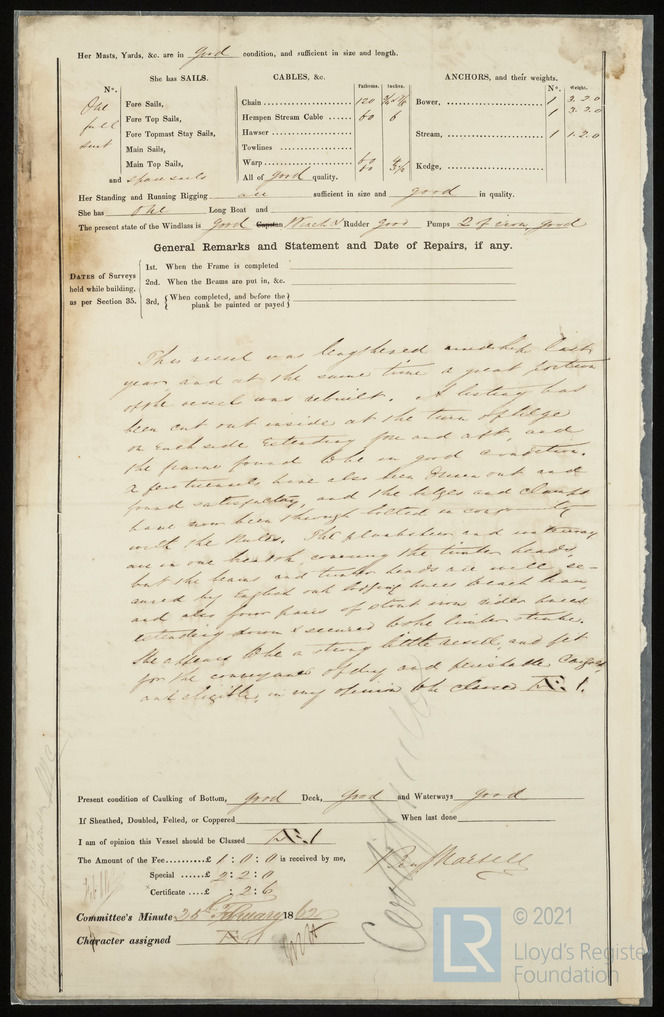 Her Masts, Yards, &c. are in good condition, and sufficient in size and length.
She has SAILS.
CABLES, &c.
ANCHORS, and their weights.
No.
Fathoms. Inches.
No. Weight.
One
full
suit
Fore Sails,
Fore Top Sails,
Fore Topmast Stay Sails,
Main Sails,
Main Top Sails,
and spare sails
Chain 120
Hempen Stream Cable 60 6
Hawser
Towlines
Warp 60 4
All of good quality.
Bower, 1 3.2.0
1 3.2.0
Stream, 1 1.2.0
Kedge,
Her Standing and Running Rigging are sufficient in size and good in quality.
She has One Long Boat and
The present state of the Windlass is good Capstan Winch & Rudder good Pumps 2 of iron, good
General Remarks and Statement and Date of Repairs, if any.
DATES of Surveys
held while building,
as per Section 35.
1st. When the Frame is completed
2nd. When the Beams are put in, &c.
3rd, { When completed, and before the
plank be painted or payed }
This vessel was lengthened amidships last
year and at the same time a great portion
of the vessel was rebuilt. A listing has
been cut out inside at the turn of bilge
on each side extending fore and aft, and
the frames found to be in good condition.
A few treenails have also been driven out and
found satisfactory, and the bilges and clamps
have now been through bolted in conformity
with the Rules. The planksheer and waterway
are in one breadth, covering the timber heads,
but the beams and timber heads are well se-
cured by English oak lodging knees to each beam,
and also four pairs of stout iron rider knees
extending down & secured to the limber strake.
She appears to be a strong little vessel, and fit
for the conveyance of dry and perishable cargoes,
and eligible, in my opinion to be classed 1.
Present condition of Caulking of Bottom, good Deck, good and Waterways good
If Sheathed, Doubled, Felted, or Coppered When last done
I am of opinion this Vessel should be Classed 1
The Amount of the Fee..........£ 1 : 0 : 0 is received by me,
Special ......£ 2 : 2 : 0
Certificate .....£ : 2 : 6
Benj Martell
Committee's Minute 25th February 1862
Character assigned
LR
© 2021
Lloyd's Registe
Foundation